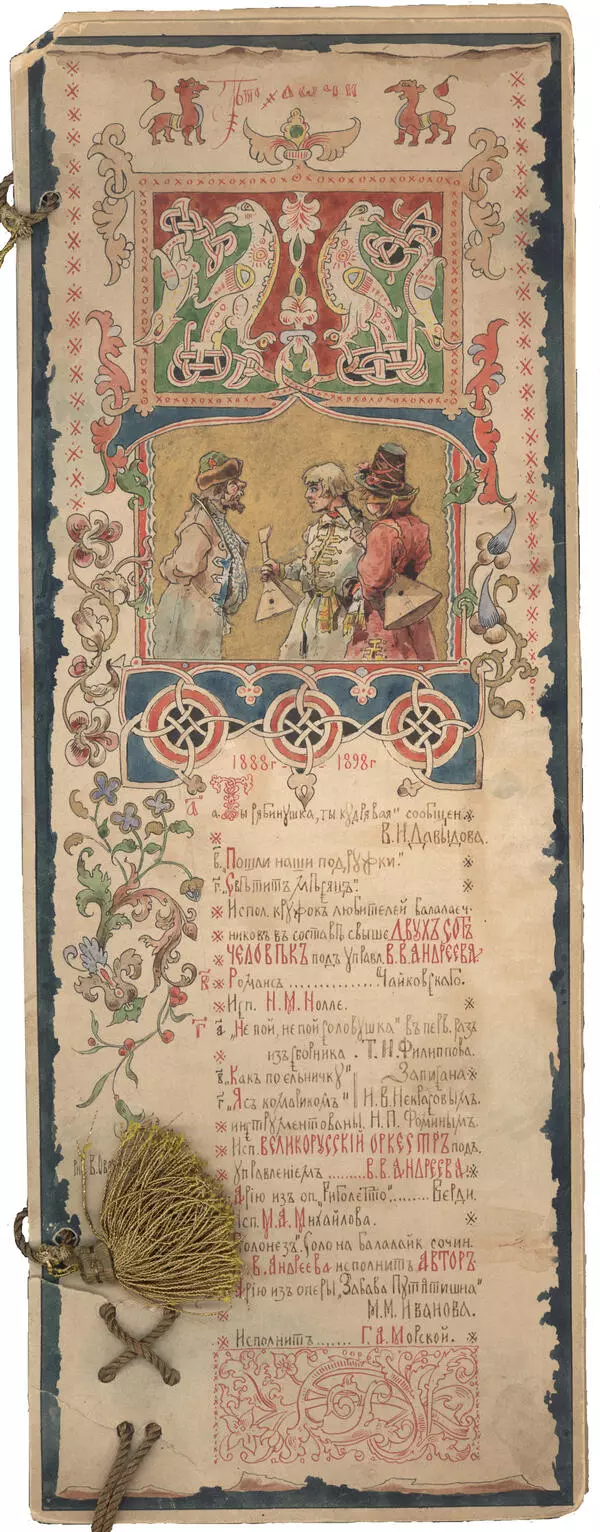 1888г - 1898г
а҃ а. Ты рябинушка, ты кудрявая" сообщен.
В. И. Давыдова.
в. „Пошли наши подружки."
г. „Свѣтитъ мѣсяцъ."
Испол. кружок любителей балалаеч-
никовъ въ составѣ свыше ДВУХЪ СОТЪ
ЧЕЛОВѢКЪ подъ управл. В. В. АНДРЕЕВА
в҃ Романсъ .............. Чайковскаго.
Исп. Н. М. Нолле.
г҃ а „Не пой, не пой соловушка" въ перв. разъ
изъ сборника . Т. И. Филиппова.
в. „Какъ по ельничку" Записана
г „Я съ комарикомъ" И. В. Некрасовымъ.
инструментованы Н. П. Фоминымъ.
Исп. ВЕЛИКОРУССКІЙ ОРКЕСТРЪ подъ
управленіемъ ........ В. В. АНДРЕЕВА
Арію изъ оп. „Риголетто"........ Верди.
Исп. М. А. Михайлова.
Полонезъ". Соло на балалайк сочин.
В. Андреева исполнитъ АВТОРЪ
Арію изъ оперы „Забава Путятишна"
М. М. Иванова.
Исполнитъ ....... Г. А. Морской.